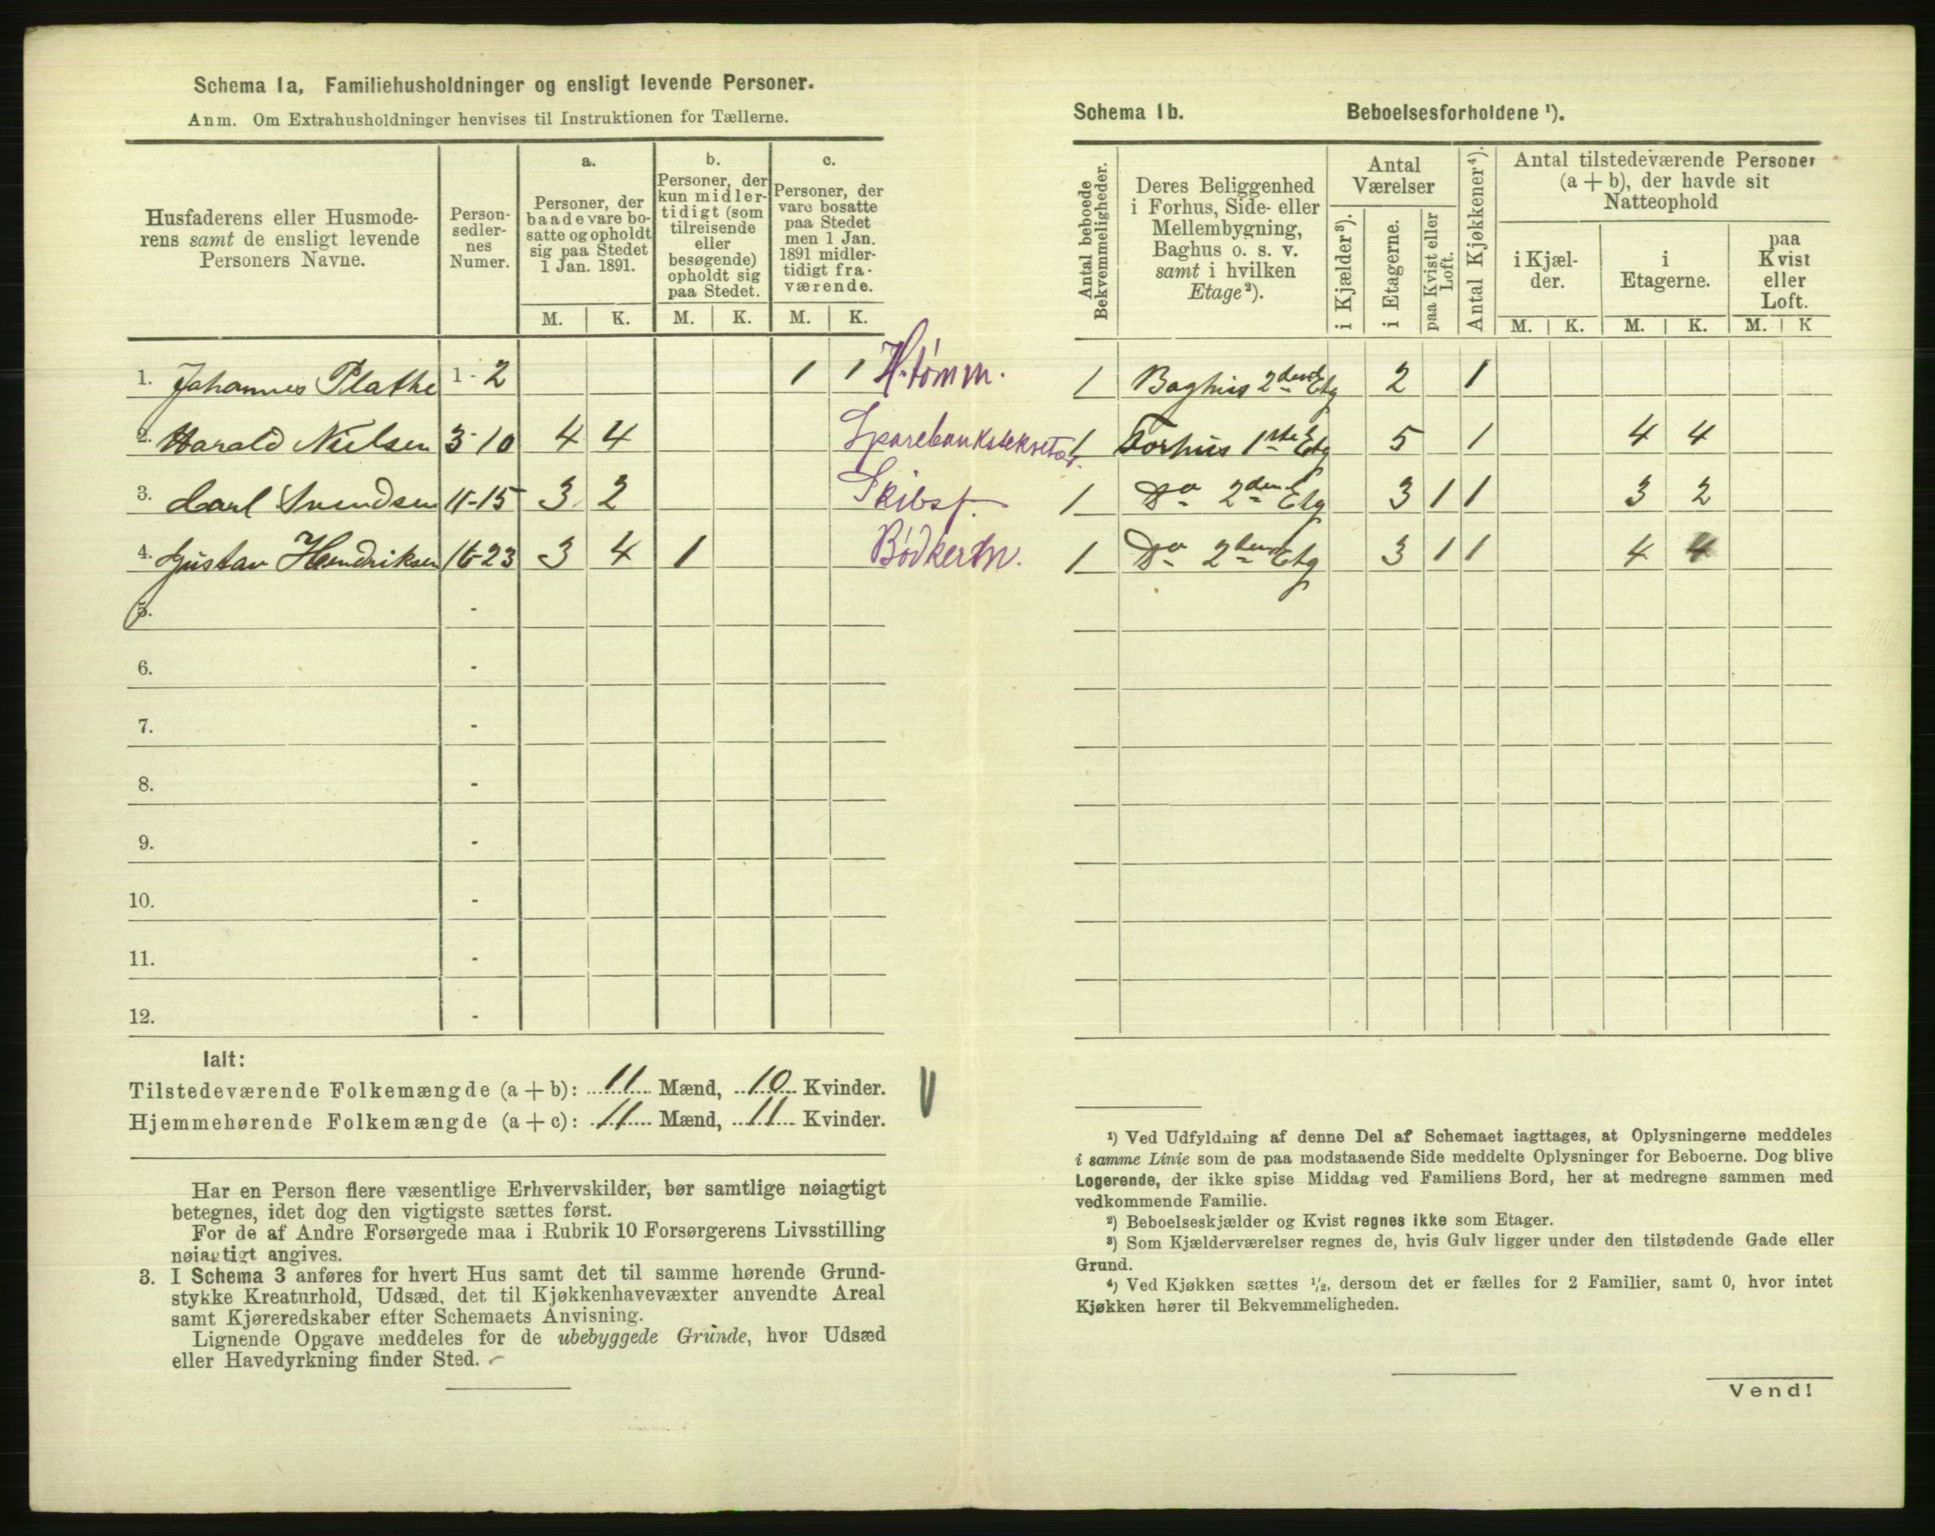 Schema 1a, Familiehusholdninger og ensligt levende Personer.
Anm. Om Extrahusholdninger henvises til Instruktionen for Tællerne.
Husfaderens eller Husmode-
rens samt de ensligt levende
Personers Navne.
Person-
sedler-
nes
Numer.
a.
Personer, der
baade vare bo-
satte og opholdt
sig paa Stedet
1 Jan. 1891.
b.
Personer, der
kun midler-
tidigt (som
tilreisende
eller
besøgende)
opholdt sig
paa Stedet.
c.
Personer, der
vare bosatte
paa Stedet
men 1 Jan.
1891 midler-
tidigt fra-
værende.
M. K. M. K. M. K.
1. Johannes Plathe 1-2 1 1 H.tømm.
2. Harald Nielsen 3-10 4 4 Sparebanksekretær.
3. Carl Svendsen 11-15 3 2 Skibsf.
4. Gustav Hendriksen 16-23 3 4 1 Bødkerm.
5. -
6. -
7. -
8. -
9. -
10. -
11. -
12. -
Ialt:
Tilstedeværende Folkemængde (a + b): 11 Mænd, 10 Kvinder.
Hjemmehørende Folkemængde (a + c): 11 Mænd, 11 Kvinder.
Har en Person flere væsentlige Erhvervskilder, bør samtlige nøiagtigt
betegnes, idet dog den vigtigste sættes først.
For de af Andre Forsørgede maa i Rubrik 10 Forsørgerens Livsstilling
nøiagtigt angives.
3. I Schema 3 anføres for hvert Hus samt det til samme hørende Grund-
stykke Kreaturhold, Udsæd, det til Kjøkkenhavevæxter anvendte Areal
samt Kjøreredskaber efter Schemaets Anvisning.
Lignende Opgave meddeles for de ubebyggede Grunde, hvor Udsæd
eller Havedyrkning finder Sted.
Schema 1b. Beboelsesforholdene ¹).
Antal beboede
Bekvemmeligheder.
Deres Beliggenhed
i Forhus, Side- eller
Mellembygning,
Baghus o. s. v.
samt i hvilken
Etage²).
Antal
Værelser
i Kjælder³).
i Etagerne.
paa Kvist eller
Loft.
Antal Kjøkkener⁴).
Antal tilstedeværende Personer
(a + b), der havde sit
Natteophold
i Kjæl-
der.
i
Etagerne.
paa
Kvist
eller
Loft.
M. K. M. K. M. K
1 Baghus 2den Etg 2 1
1 Forhus 1ste Etg 5 1 4 4
1 Do 2den Etg 3 1 1 3 2
1 Do 2den Etg 3 1 1 4 4
¹) Ved Udfyldning af denne Del af Schemaet iagttages, at Oplysningerne meddeles
i samme Linie som de paa modstaaende Side meddelte Oplysninger for Beboerne. Dog blive
Logerende, der ikke spise Middag ved Familiens Bord, her at medregne sammen med
vedkommende Familie.
²) Beboelseskjælder og Kvist regnes ikke som Etager.
³) Som Kjælderværelser regnes de, hvis Gulv ligger under den tilstødende Gade eller
Grund.
⁴) Ved Kjøkken sættes ¹/₂, dersom det er fælles for 2 Familier, samt 0, hvor intet
Kjøkken hører til Bekvemmeligheden.
Vend!